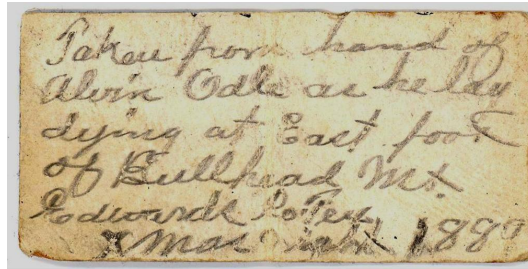 Taken from hand of
Alvin Odle as he lay
dying at East foot
of Bullhead Mt.
Edwards Co Tex
Xmas night 1889